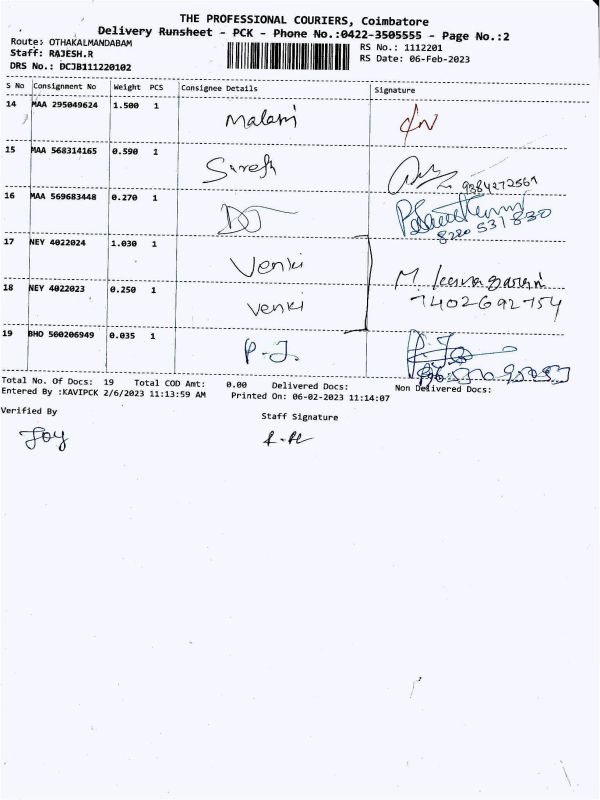 THE PROFESSIONAL COURIERS, Coimbatore
Delivery Runsheet - PCK - Phone No.:0422-3505555 - Page No.:2
Route: OTHAKALMANDABAM
RS No.: 1112201
Staff: RAJESH.R
RS Date: 06-Feb-2023
DRS No.: DCJB111220102
S No Consignment No Weight PCS Consignee Details Signature
14 MAA 295049624 1.500 1
15 MAA 568314165 0.590 1 Suresh
9384272569
16 MAA 569683448 0.270 1
8220 531 830
17 NEY 4022024 1.030 1 Venki
18 NEY 4022023 0.250 1 Venki
7402692754
19 BHO 500206949 0.035 1 P-J.
Total No. Of Docs: 19 Total COD Amt: 0.00 Delivered Docs: Non Delivered Docs:
Entered By :KAVIPCK 2/6/2023 11:13:59 AM Printed On: 06-02-2023 11:14:07
Verified By Staff Signature
Joy